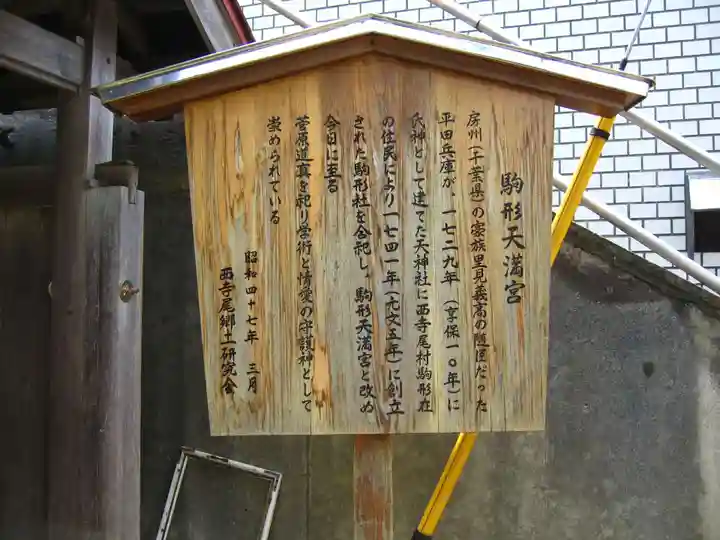 駒形天満宮
房州(千葉県)の家族里見義高の随臣だった
平田兵庫が、一七二九年(享保一〇年)に
氏神として建てた天神社に西寺尾村駒形在
の住民により一七四一年(元文五年)に創立
された駒形社を合祀し、駒形天満宮と改め
今日に至る
菅原道真を祀り学術と情愛の守護神として
崇められている
昭和四十七年 三月
西寺尾郷土研究会